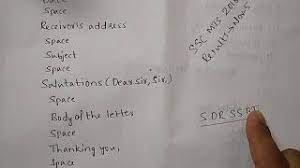 Space
Receiver's address
Space
Subject
Space
Salutations (Dear sir, Sir,)
Space
Body of the letter
Space
Thanking you,
Space
SSC MTS